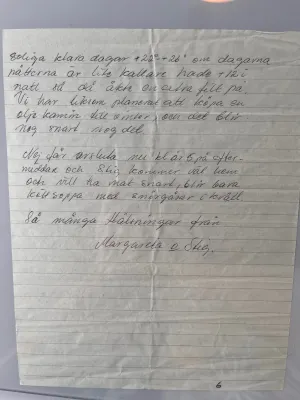 soliga klara dagar +22°-+26° om dagarna
nätterna är lite kallare hade +12 i
natt så då åkte en extra filt på
Vi har liksom planerat att köpa en
olje kamin till vinter, och det blir
nog snart nog det.
Nej får avsluta nu kl är 5 på efter-
middax och Stig kommer väl hem
och vill ha mat snart, blir bara
köttsoppa med smörgåsar i kväll
Så många Hälsningar från
Margareta o Stig.
6